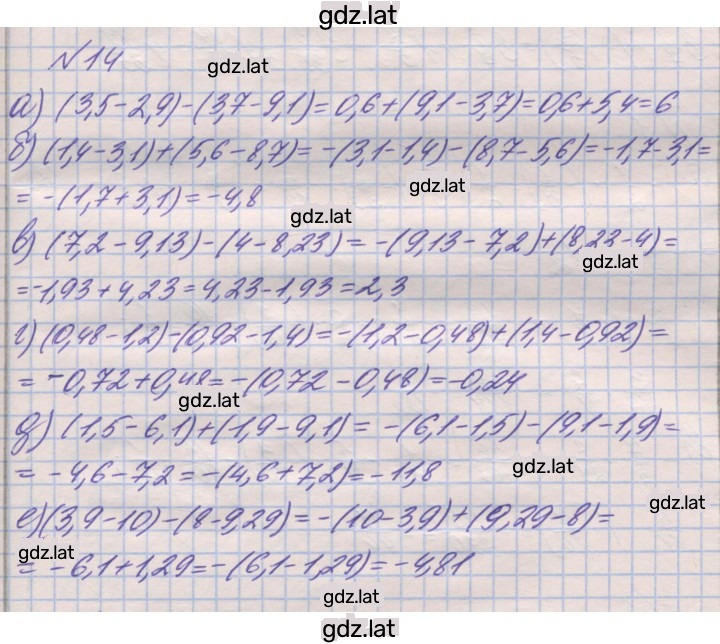 gdz.lat
№14
gdz.lat
а) (3,5-2,9)-(3,7-9,1)=0,6+(9,1-3,7)=0,6+5,4=6
б) (1,4-3,1)+(5,6-8,7)=-(3,1-1,4)-(8,7-5,6)=-1,7-3,1=
gdz.lat
=-(1,7+3,1)=-4,8
gdz.lat
в) (7,2-9,13)-(4-8,23)=-(9,13-7,2)+(8,23-4)=
gdz.lat
=-1,93+4,23=4,23-1,93=2,3
г) (0,48-1,2)-(0,92-1,4)=-(1,2-0,48)+(1,4-0,92)=
=-0,72+0,48=-(0,72-0,48)=-0,24
gdz.lat
д) (1,5-6,1)+(1,9-9,1)=-(6,1-1,5)-(9,1-1,9)=
=-4,6-7,2=-(4,6+7,2)=-11,8
gdz.lat
gdz.lat
е) (3,9-10)-(8-9,29)=-(10-3,9)+(9,29-8)=
gdz.lat
=-6,1+1,29=-(6,1-1,29)=-4,81
gdz.lat
gdz.lat